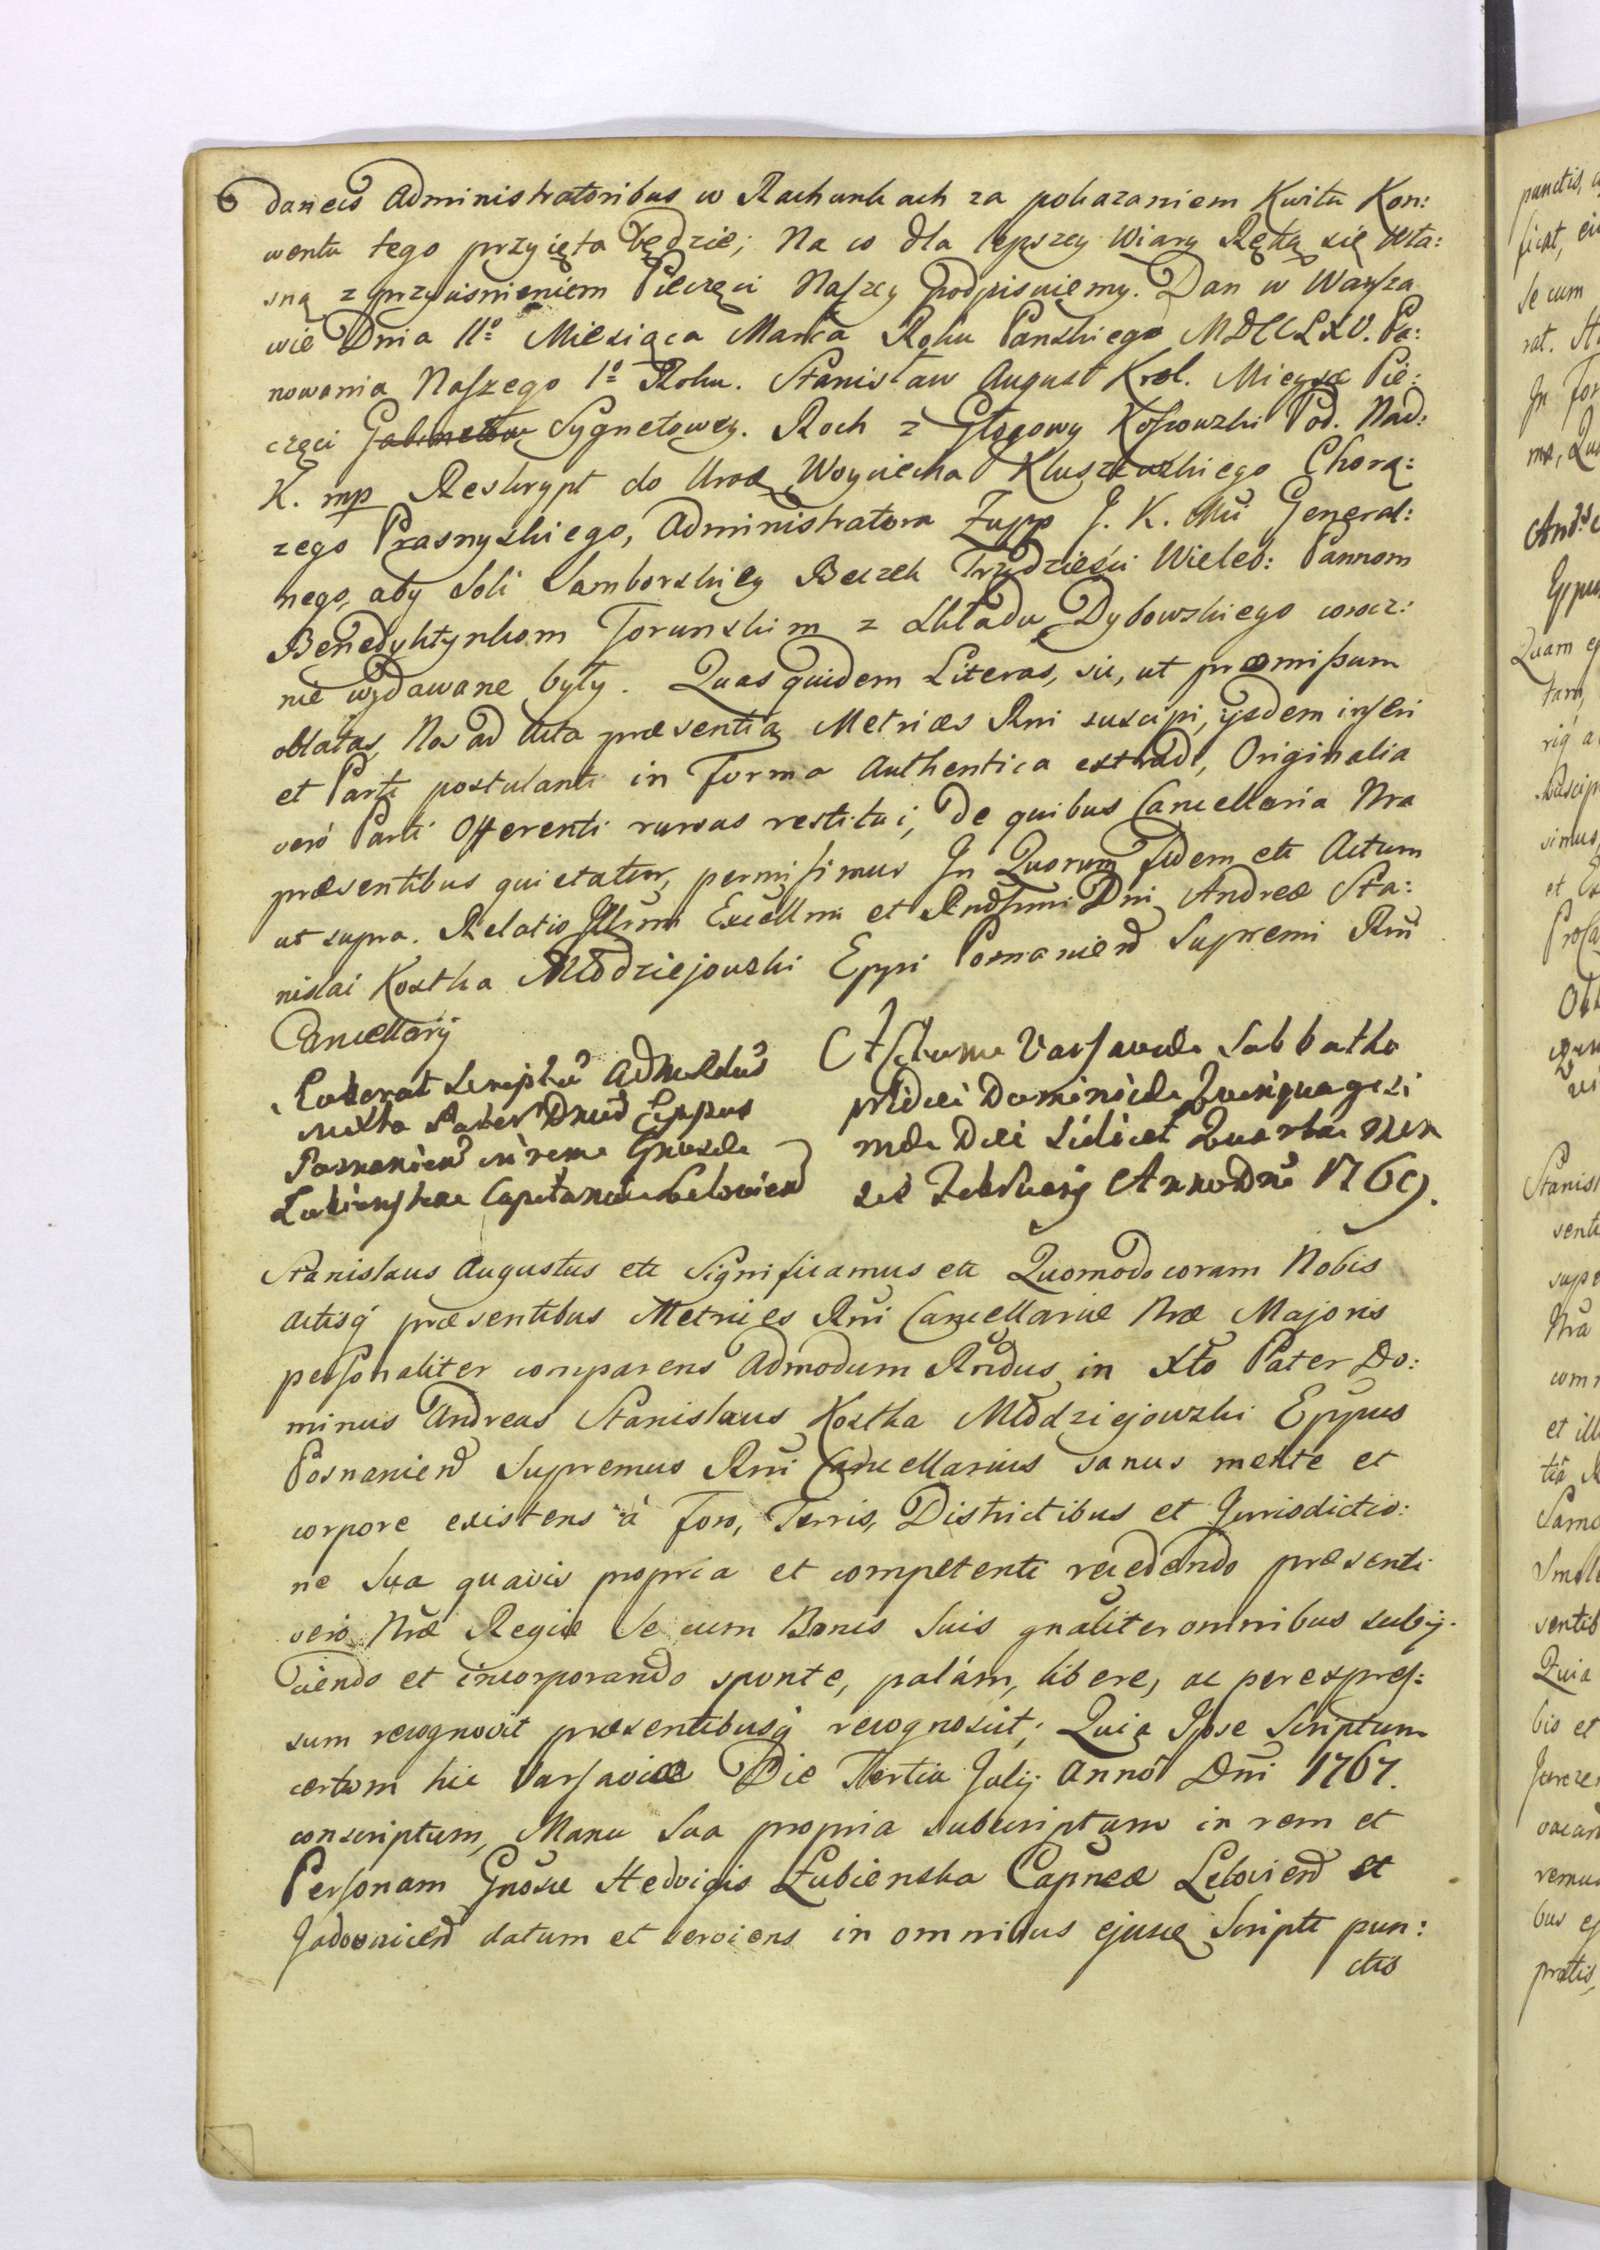 6 daneis Administratoribus w Rachunkach za pokazaniem Kwitu Kon:
wentu tego przyięta będzie; Na co dla lepszey Wiary Ręką się Wła:
sną z przyciśnieniem Pieczęci Naszey podpisuiemy. Dan w Warsza
wie Dnia 11º Miesiąca Marca Roku Panskiego MDCCLXV. Pa:
nowania Naszego 1º Roku. Stanisław August Krol. Mieysce Pie:
częci Gabinetow Sygnetowey. Roch z Głogowy Kossowski Pod. Nad:
K. mp Reskrypt do Urodz Woyciecha Kluszewskiego Chorą:
zego Prasnyskiego, Administratora Zupp J. K. Mci General:
nego, aby Soli Samborskiey Beczek Trzydzieści Wieleb: Pannom
Benedyktynkom Torunskim z Składu Dybowskiego corocz:
nie wydawane były. Quas quidem Literas, sic, ut præmissum
oblatas, Nos ad Acta præsentia Metrices Rni suscipi, ijsdem inseri
et Parti postulanti in Forma Authentica extradi, Originalia
verò Parti Offerenti rursus restitui, de quibus Cancellaria Nra
præsentibus quietatur, permisimus In Quorum fidem etc Actum
ut supra. Relatio Illrmi Excellmi et Rndssmi Dni Andreæ Sta:
nislai Kostka Młodziejowski Eppi Posnanien Supremi Rni
Cancellarij
Roborat Scriptũ Admdus
in Xto Pater Dnus Eppus
Posnanien in rem Gnosæ
Łubienska Capitaneæ Lelovien
Actum Varsaviæ Sabbatho
pridie Dominicæ Quinquagesi
mæ Die scilicet Quarta Men
sis Februarij Anno Dni 1769.
Stanislaus Augustus etc Significamus etc Quomodo coram Nobis
Actisq præsentibus Metrices Rni Cancellariæ Nræ Majoris
personaliter comparens Admodum Rndus in Xto Pater Do:
minus Andreas Stanislaus Kostka Młodziejowski Eppus
Posnanien Supremus Rni Cancellarius sanus mente et
corpore existens à Foro, Terris, Districtibus et Jurisdictio:
ne Sua quavis propria et competenti recedendo præsenti
verò Nræ Regiæ Se cum Bonis Suis gnaliter omnibus subij
ciendo et incorporando sponte, palàm, libere, ac per expres:
sum recognovit præsentibusq recognoscit; Quia Ipse Scriptum
certum hic Varsaviæ Die Tertia Julij Anno Dni 1767.
conscriptum, Manu Sua propria subscriptum in rem et
Personam Gnosæ Hedvigis Łubienska Capneæ Lelovien et
Jadovnicen datum et serviens in omnibus ejusd Scripti pun:
ctis